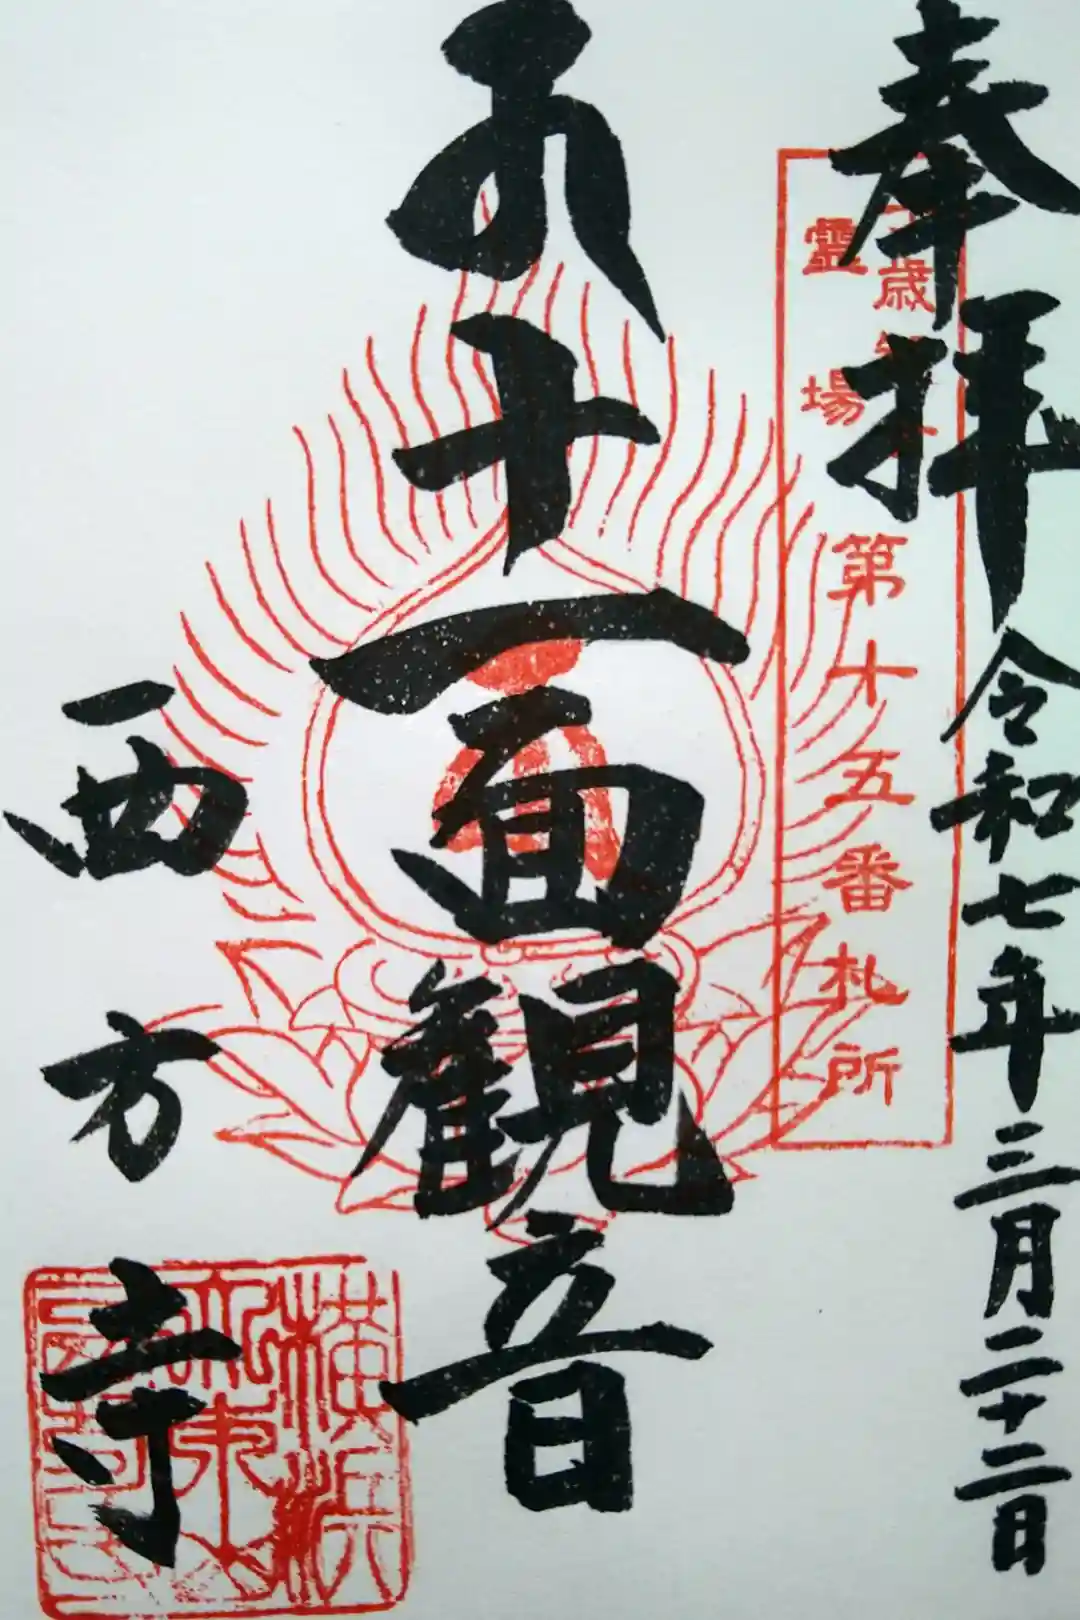 奉拝 令和七年三月二十二日
歳
霊場
第十五番札所
十一面観音
西方寺
横浜